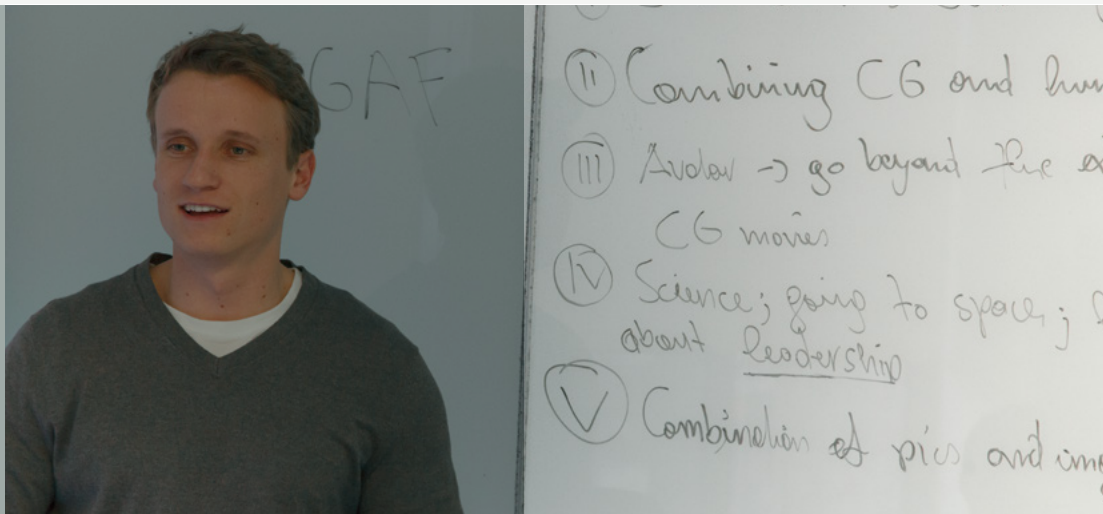 GAF
II Combining CG and
III Avatar → go beyond the
CG movies
IV Science; going to space;
about leadership
V Combination of pics and